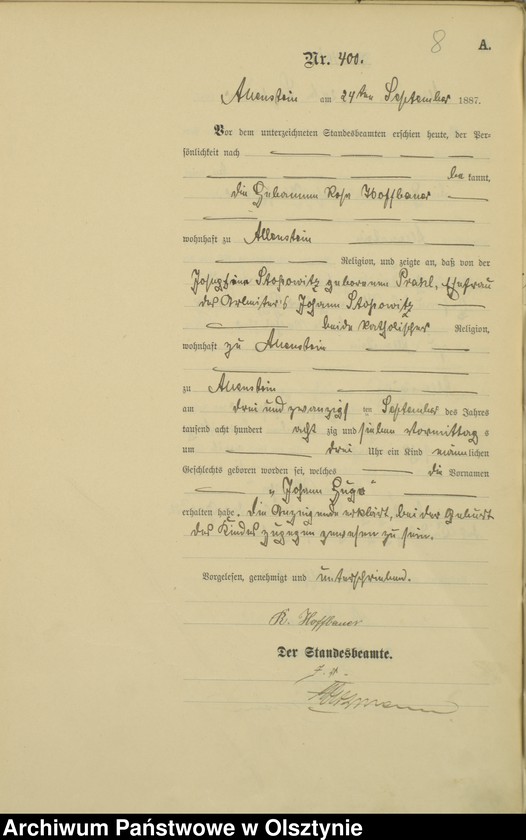 8
A.
Nr. 400.
Allenstein am 24ten September 1887.
Vor dem unterzeichneten Standesbeamten erschien heute, der Per-
sönlichkeit nach
be kannt,
die Hebamme Rosa Hoffbauer
wohnhaft zu Allenstein
Religion, und zeigte an, daß von der
Josephine geborenen Ehefrau
des Arbeiters Johann
beide katholischer Religion,
wohnhaft zu Allenstein
zu Allenstein
am drei und zwanzigsten September des Jahres
tausend acht hundert acht zig und sieben Vormittag s
um drei Uhr ein Kind männ lichen
Geschlechts geboren worden sei, welches die Vornamen
„Johann Hugo"
erhalten habe. Die Anzeigende erklärt, bei der Geburt
des Kindes zugegen gewesen zu sein.
Vorgelesen, genehmigt und unterschrieben.
R. Hoffbauer
Der Standesbeamte.
Archiwum Państwowe w Olsztynie